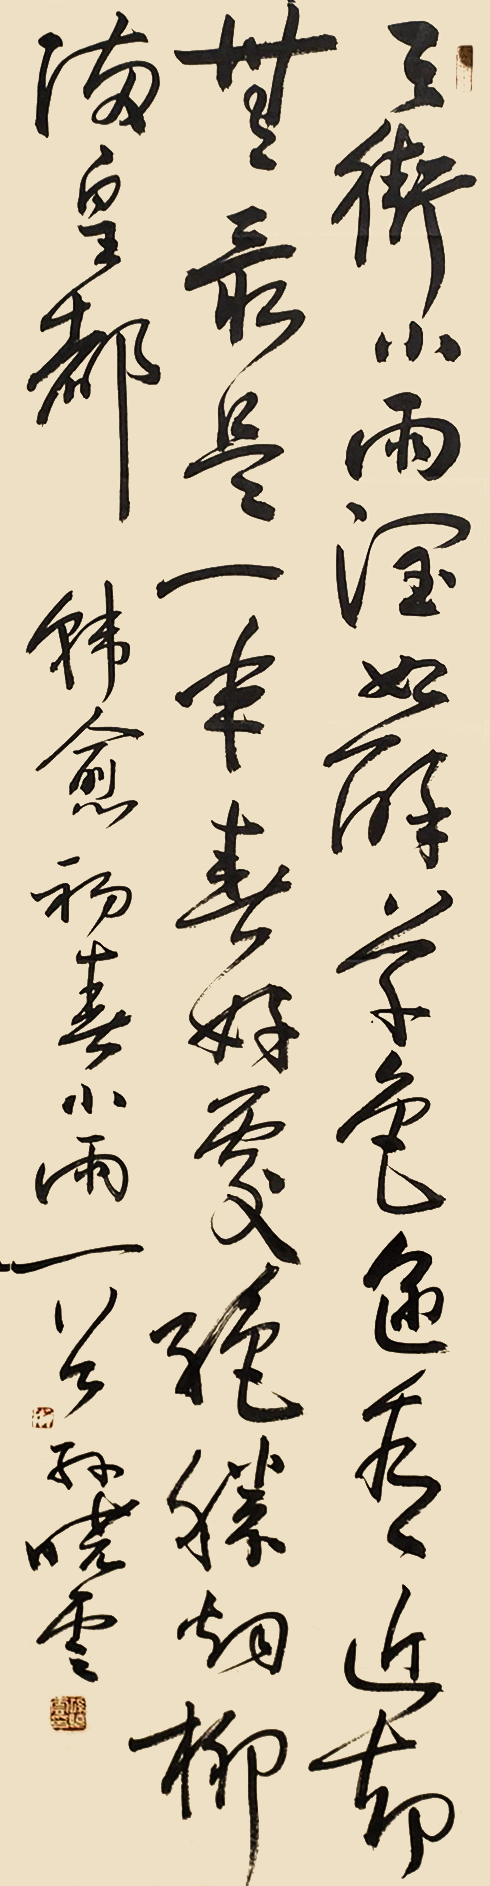 天街小雨潤如酥草色遥看近却
無最是一年春好處絕勝烟柳
滿皇都 韓愈初春小雨一首 孫曉雲